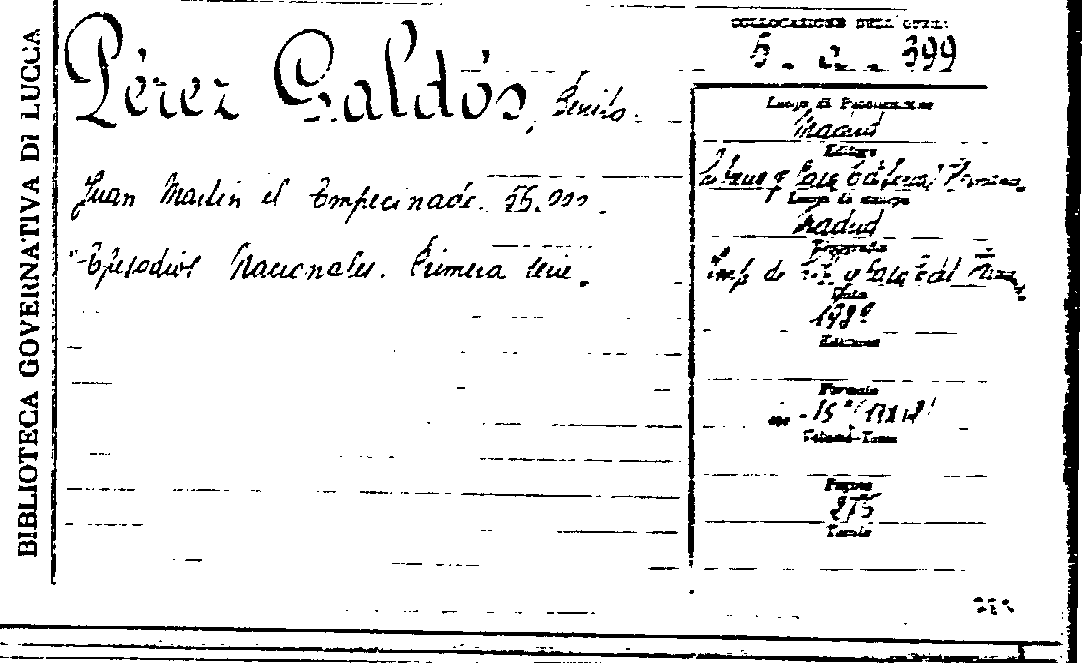 BIBLIOTECA GOVERNATIVA DI LUCCA
COLLOCAZIONE DELL'OPERA:
5. a. 399
Pérez Galdós, Benito.
Luogo di Pubblicazione
Madrid
Editore
Casa Editorial Hernando
Luogo di stampa
Madrid
Juan Martin el Empecinado. 55.000.
Tipografia
Episodios Nacionales. Primera serie.
Imp. de y Casa Edit.
Data
Edizione
Formato
in-
Volumi-Tomi
Pagine
275
Tavole